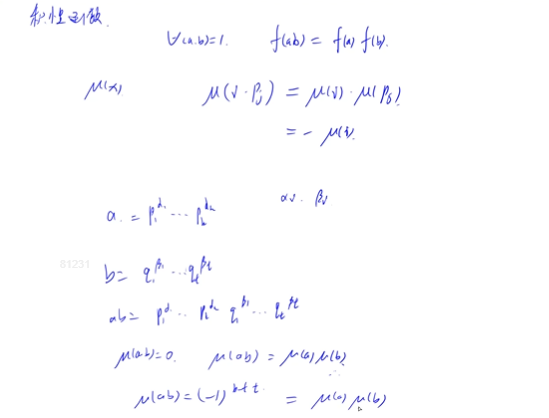 积性函数.
∀(a,b)=1. f(ab) = f(a) f(b).
μ(x) μ(i·Pj) = μ(i)·μ(Pj)
= - μ(i).
αi. βi
a. = p₁^α₁ ... pₖ^αₖ
81231
b= q₁^β₁ ... qₜ^βₜ
ab= p₁^α₁ ... pₖ^αₖ q₁^β₁ ... qₜ^βₜ
μ(ab)=0. μ(ab) = μ(a) μ(b)
μ(ab) = (-1)^k+t. = μ(a) μ(b)